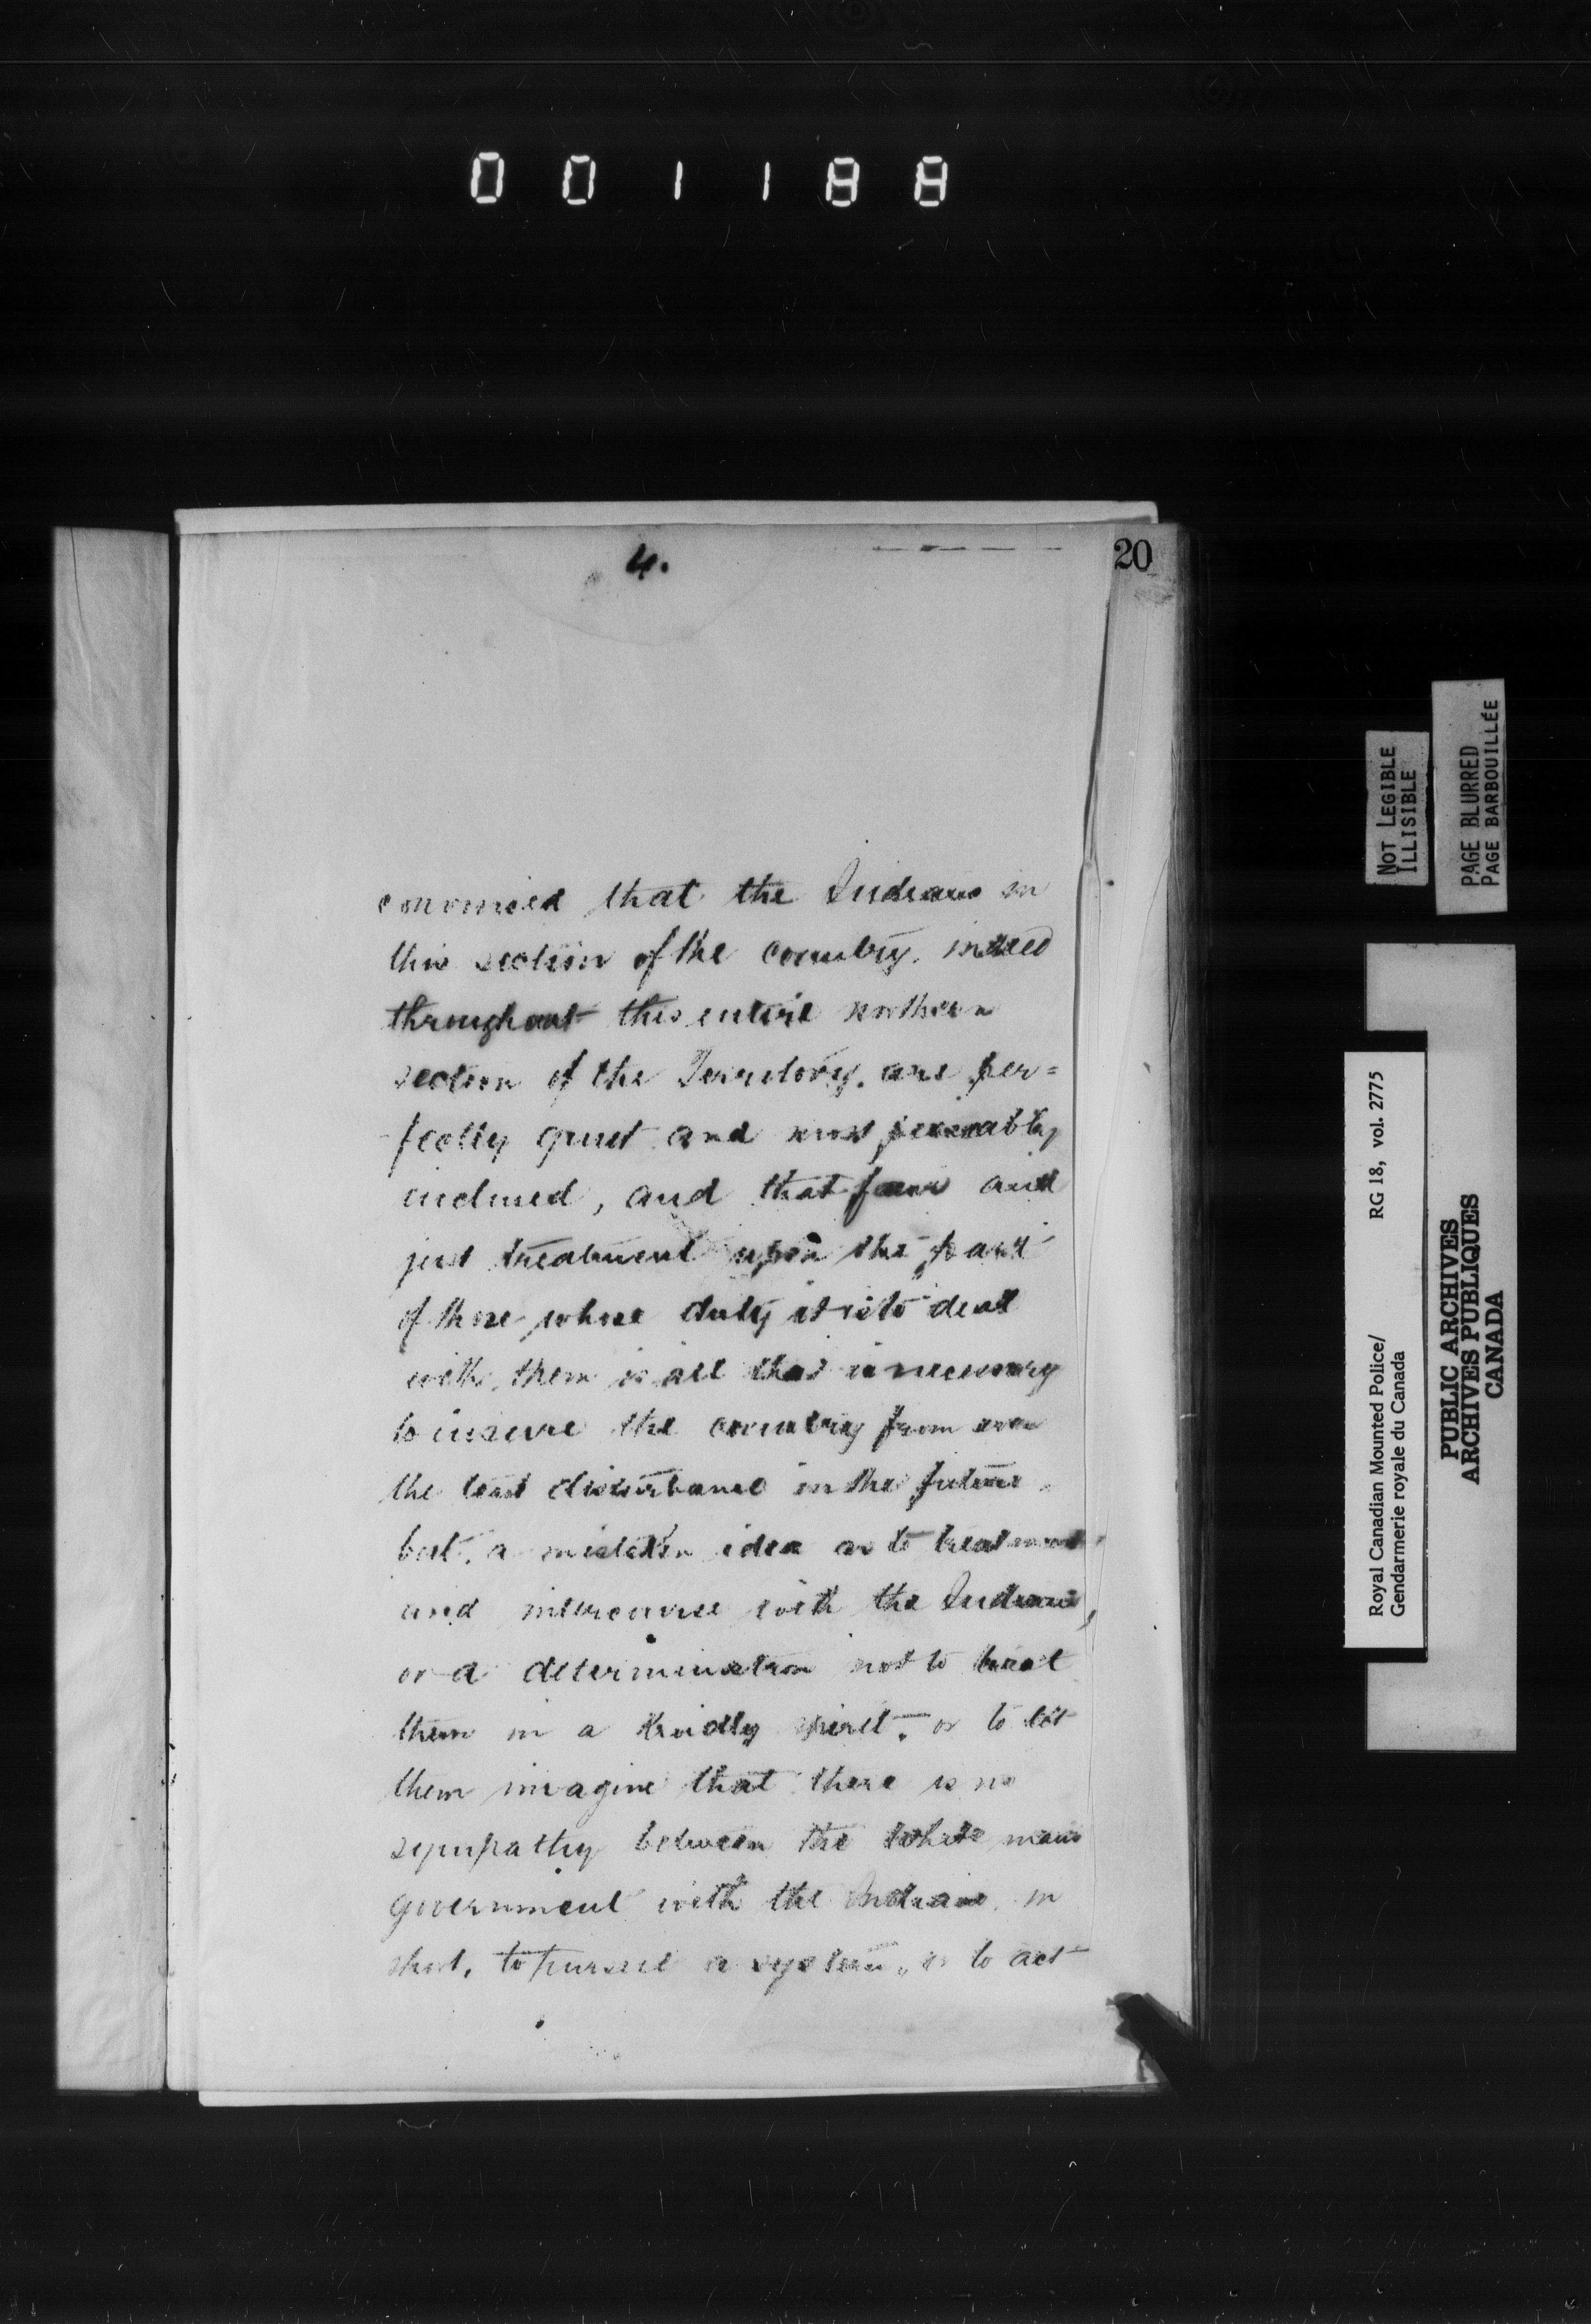 001188
4.
20
convinced that the Indians in
this section of the country, indeed
throughout this entire northern
section of the Territory, are per=
fectly quiet and most peaceably
inclined, and that fair and
just treatment upon the part
of those whose duty it is to deal
with them is all that is necessary
to insure the country from even
the least disturbance in the future,
but, a mistaken idea as to treatment
and intercourse with the Indians,
or a determination not to treat
them in a kindly spirit, or to let
them imagine that there is no
sympathy between the White mans
government with the Indians, in
short, to pursue a system, or to act
NOT LEGIBLE
ILLISIBLE
PAGE BLURRED
PAGE BARBOUILLÉE
Royal Canadian Mounted Police/ RG 18, vol. 2775
Gendarmerie royale du Canada
PUBLIC ARCHIVES
ARCHIVES PUBLIQUES
CANADA